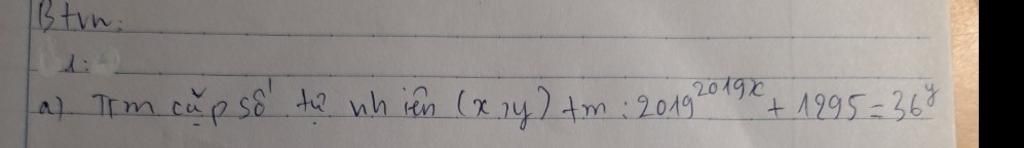 Btvn:
1:
a) Tìm cặp số tự nhiên (x,y) tm: 2019^2019x + 1295 = 36^y